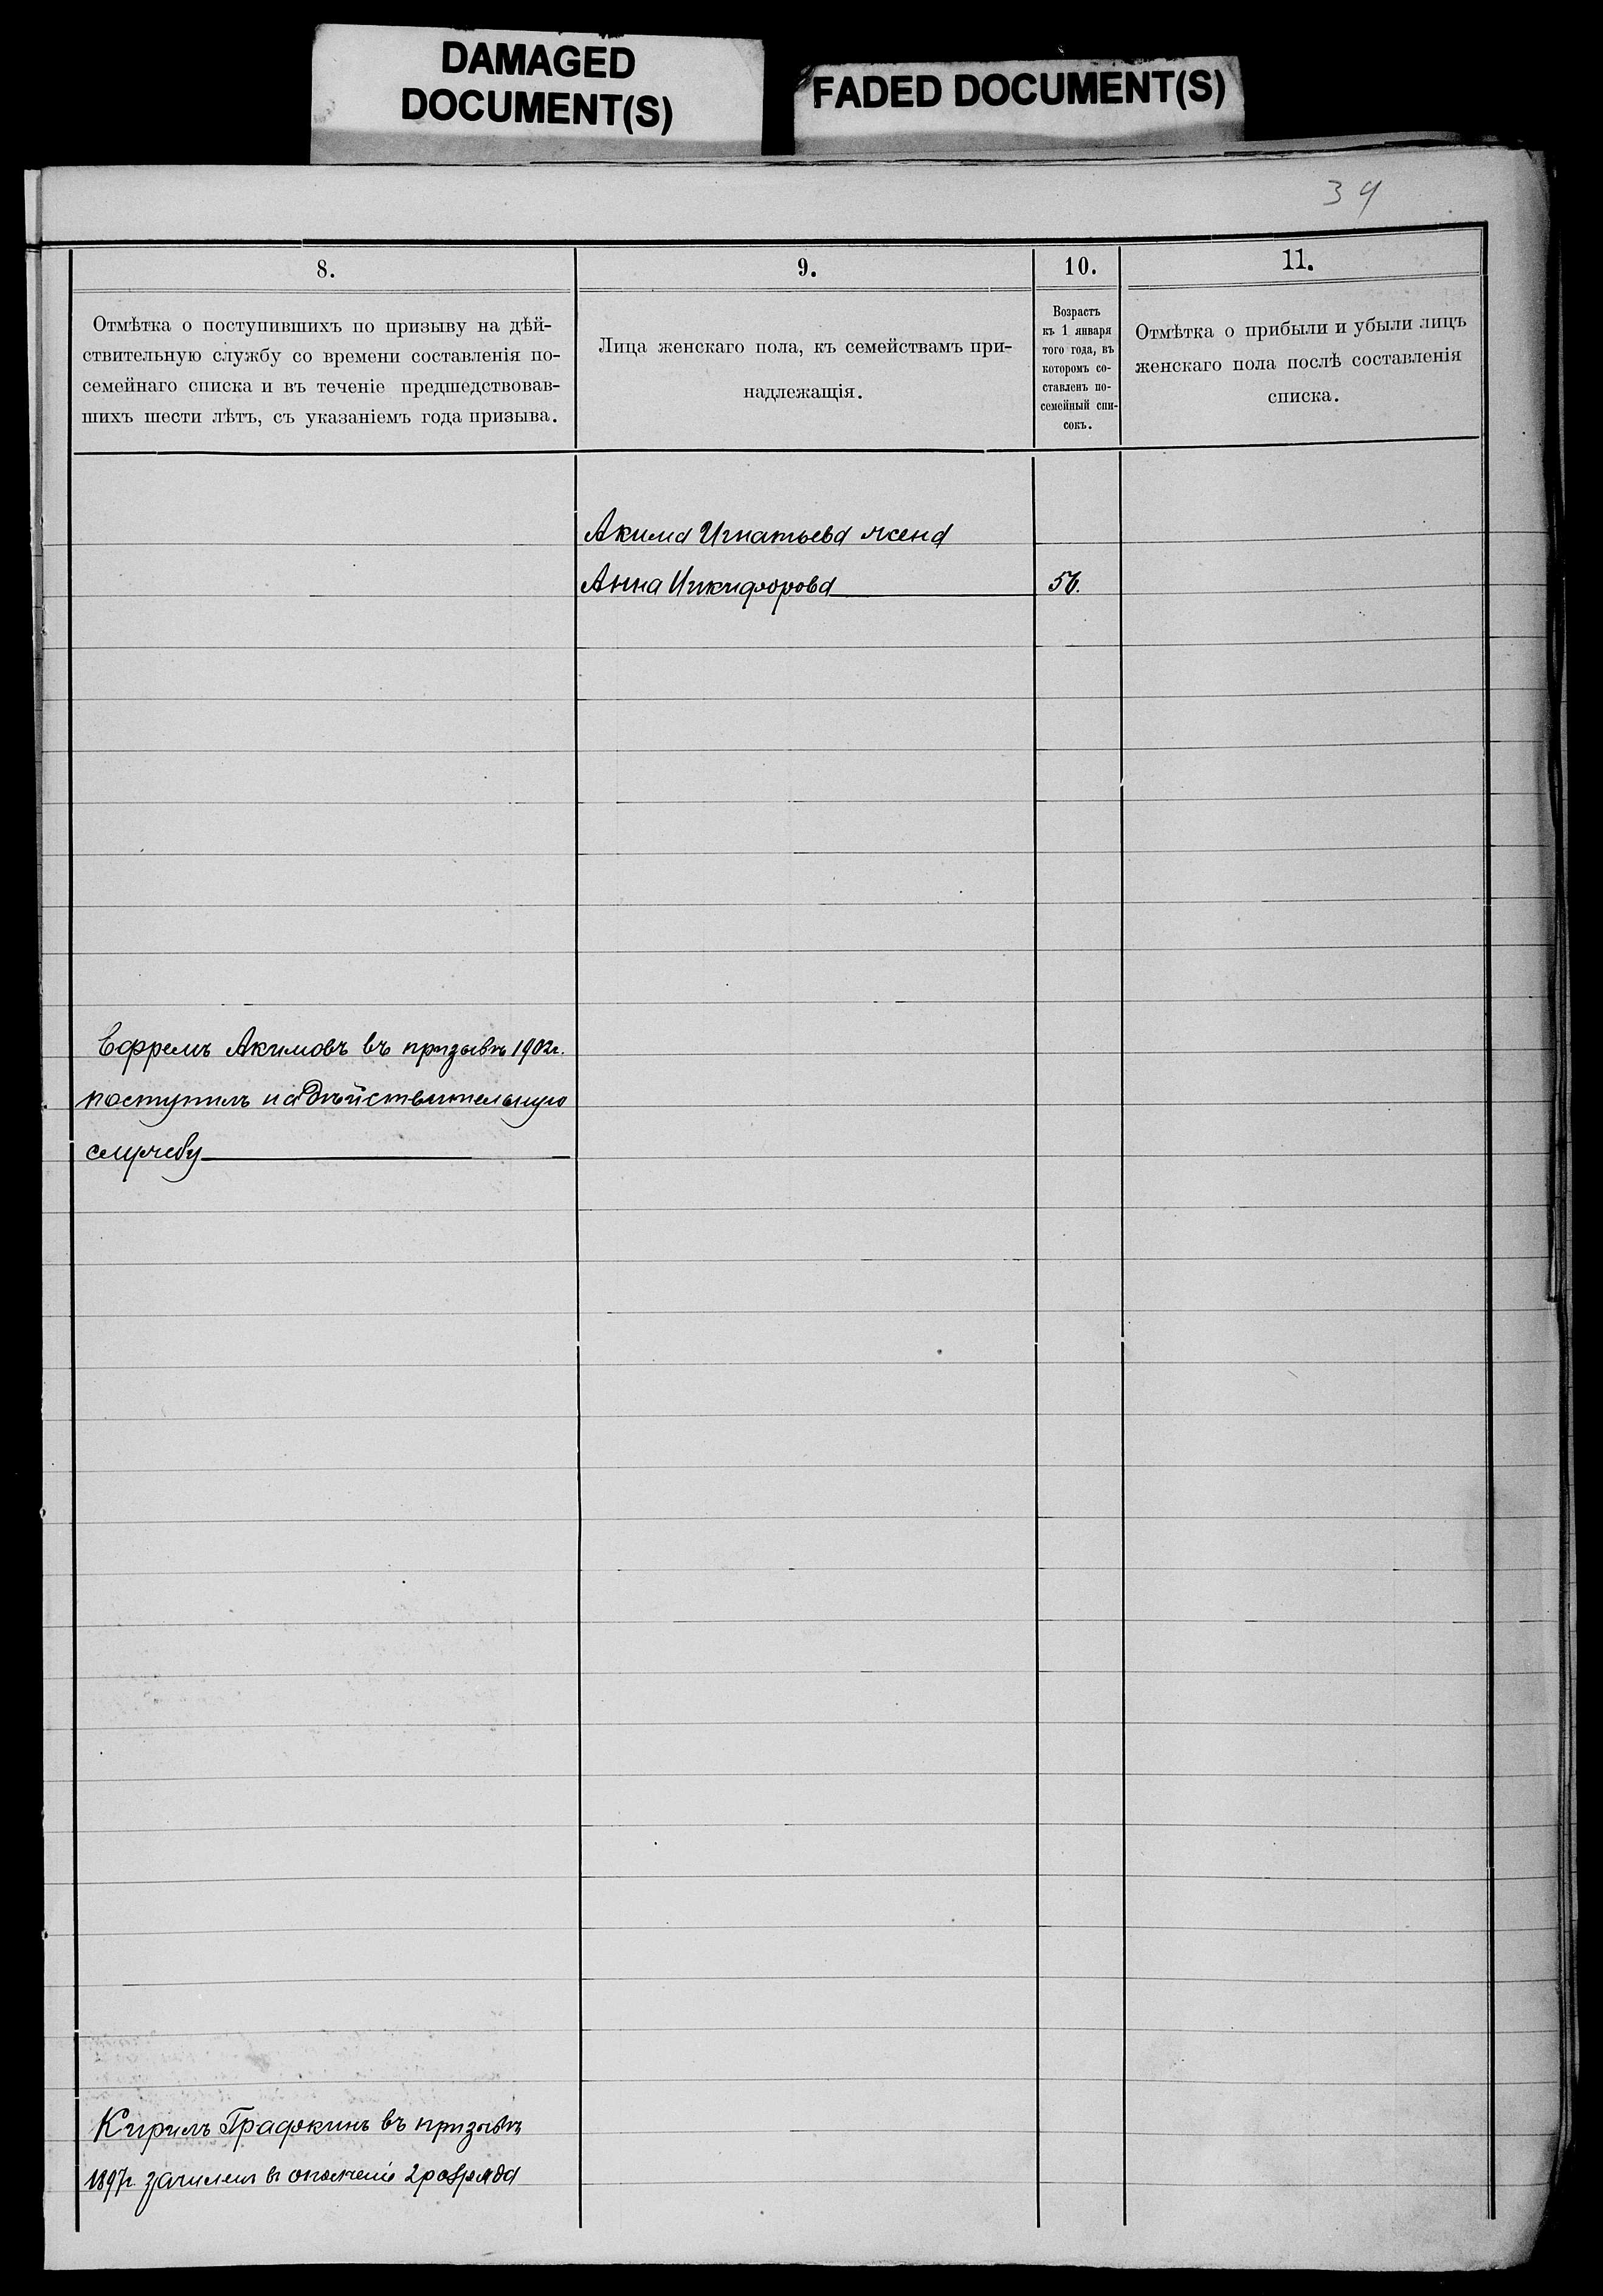 DAMAGED
DOCUMENT(S)
FADED DOCUMENT(S)
39
8.
Отмѣтка о поступившихъ по призыву на дѣй-
ствительную службу со времени составленія по-
семейнаго списка и въ теченіе предшедствовав-
шихъ шести лѣтъ, съ указаніемъ года призыва.
9.
Лица женскаго пола, къ семействамъ при-
надлежащія.
10.
Возрастъ
къ 1 января
того года, въ
которомъ со-
ставленъ по-
семейный спи-
сокъ.
11.
Отмѣтка о прибыли и убыли лицъ
женскаго пола послѣ составленія
списка.
Акима Игнатьева жена
Анна Никифорова 56.
Ефремъ Акимовъ въ призывѣ 1902г.
поступилъ на дѣйствительную
службу
Кирилъ Графкинъ въ призывѣ
1897г. зачислен в ополченіе 2 разряда